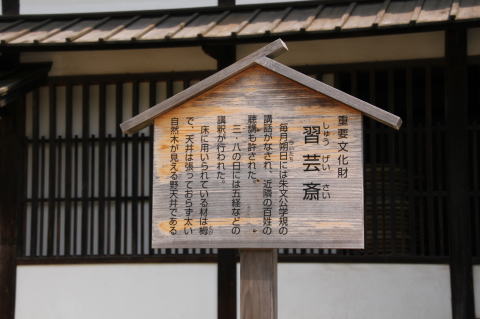 重要文化財
習芸斎
しゅうげいさい
毎月朔日には朱文公学規の
講話がなされ、近隣の百姓の
聴講も許された。
三・八の日には五経などの
講釈が行われた。
床に用いられている材は栂
で、天井は張っておらず太い
自然木が見える野天井である